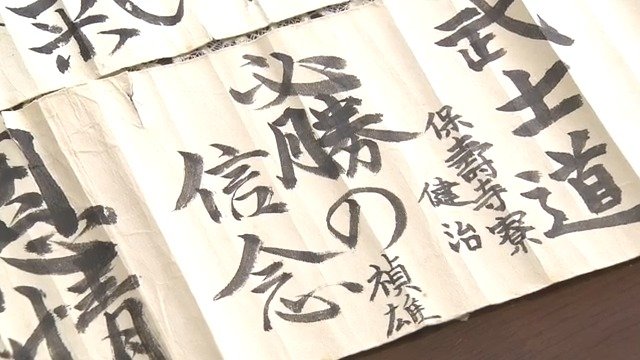 武士道
保壽寺寮
健治
必勝の
信念
禎雄
氣
情